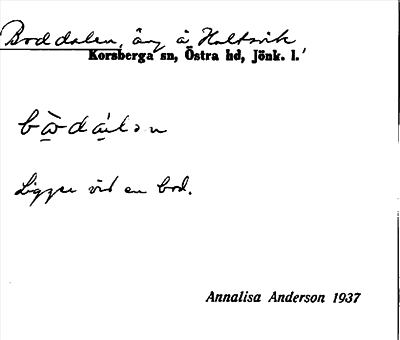 Boddalen, äng å Holtsvik
Korsberga sn, Östra hd, Jönk. l.
bɷ̀dáln
Ligger vid en bod.
Annalisa Anderson 1937